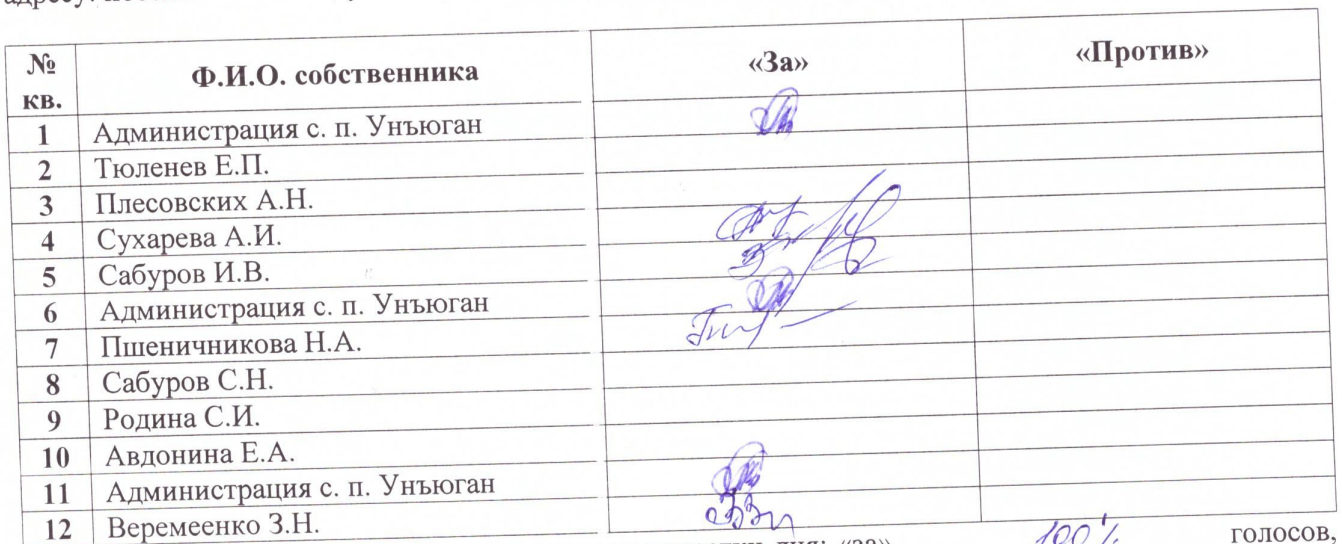 № кв. Ф.И.О. собственника «За» «Против»
1 Администрация с. п. Унъюган
2 Тюленев Е.П.
3 Плесовских А.Н.
4 Сухарева А.И.
5 Сабуров И.В.
6 Администрация с. п. Унъюган
7 Пшеничникова Н.А.
8 Сабуров С.Н.
9 Родина С.И.
10 Авдонина Е.А.
11 Администрация с. п. Унъюган
12 Веремеенко З.Н.
дня: «за» 100% голосов,